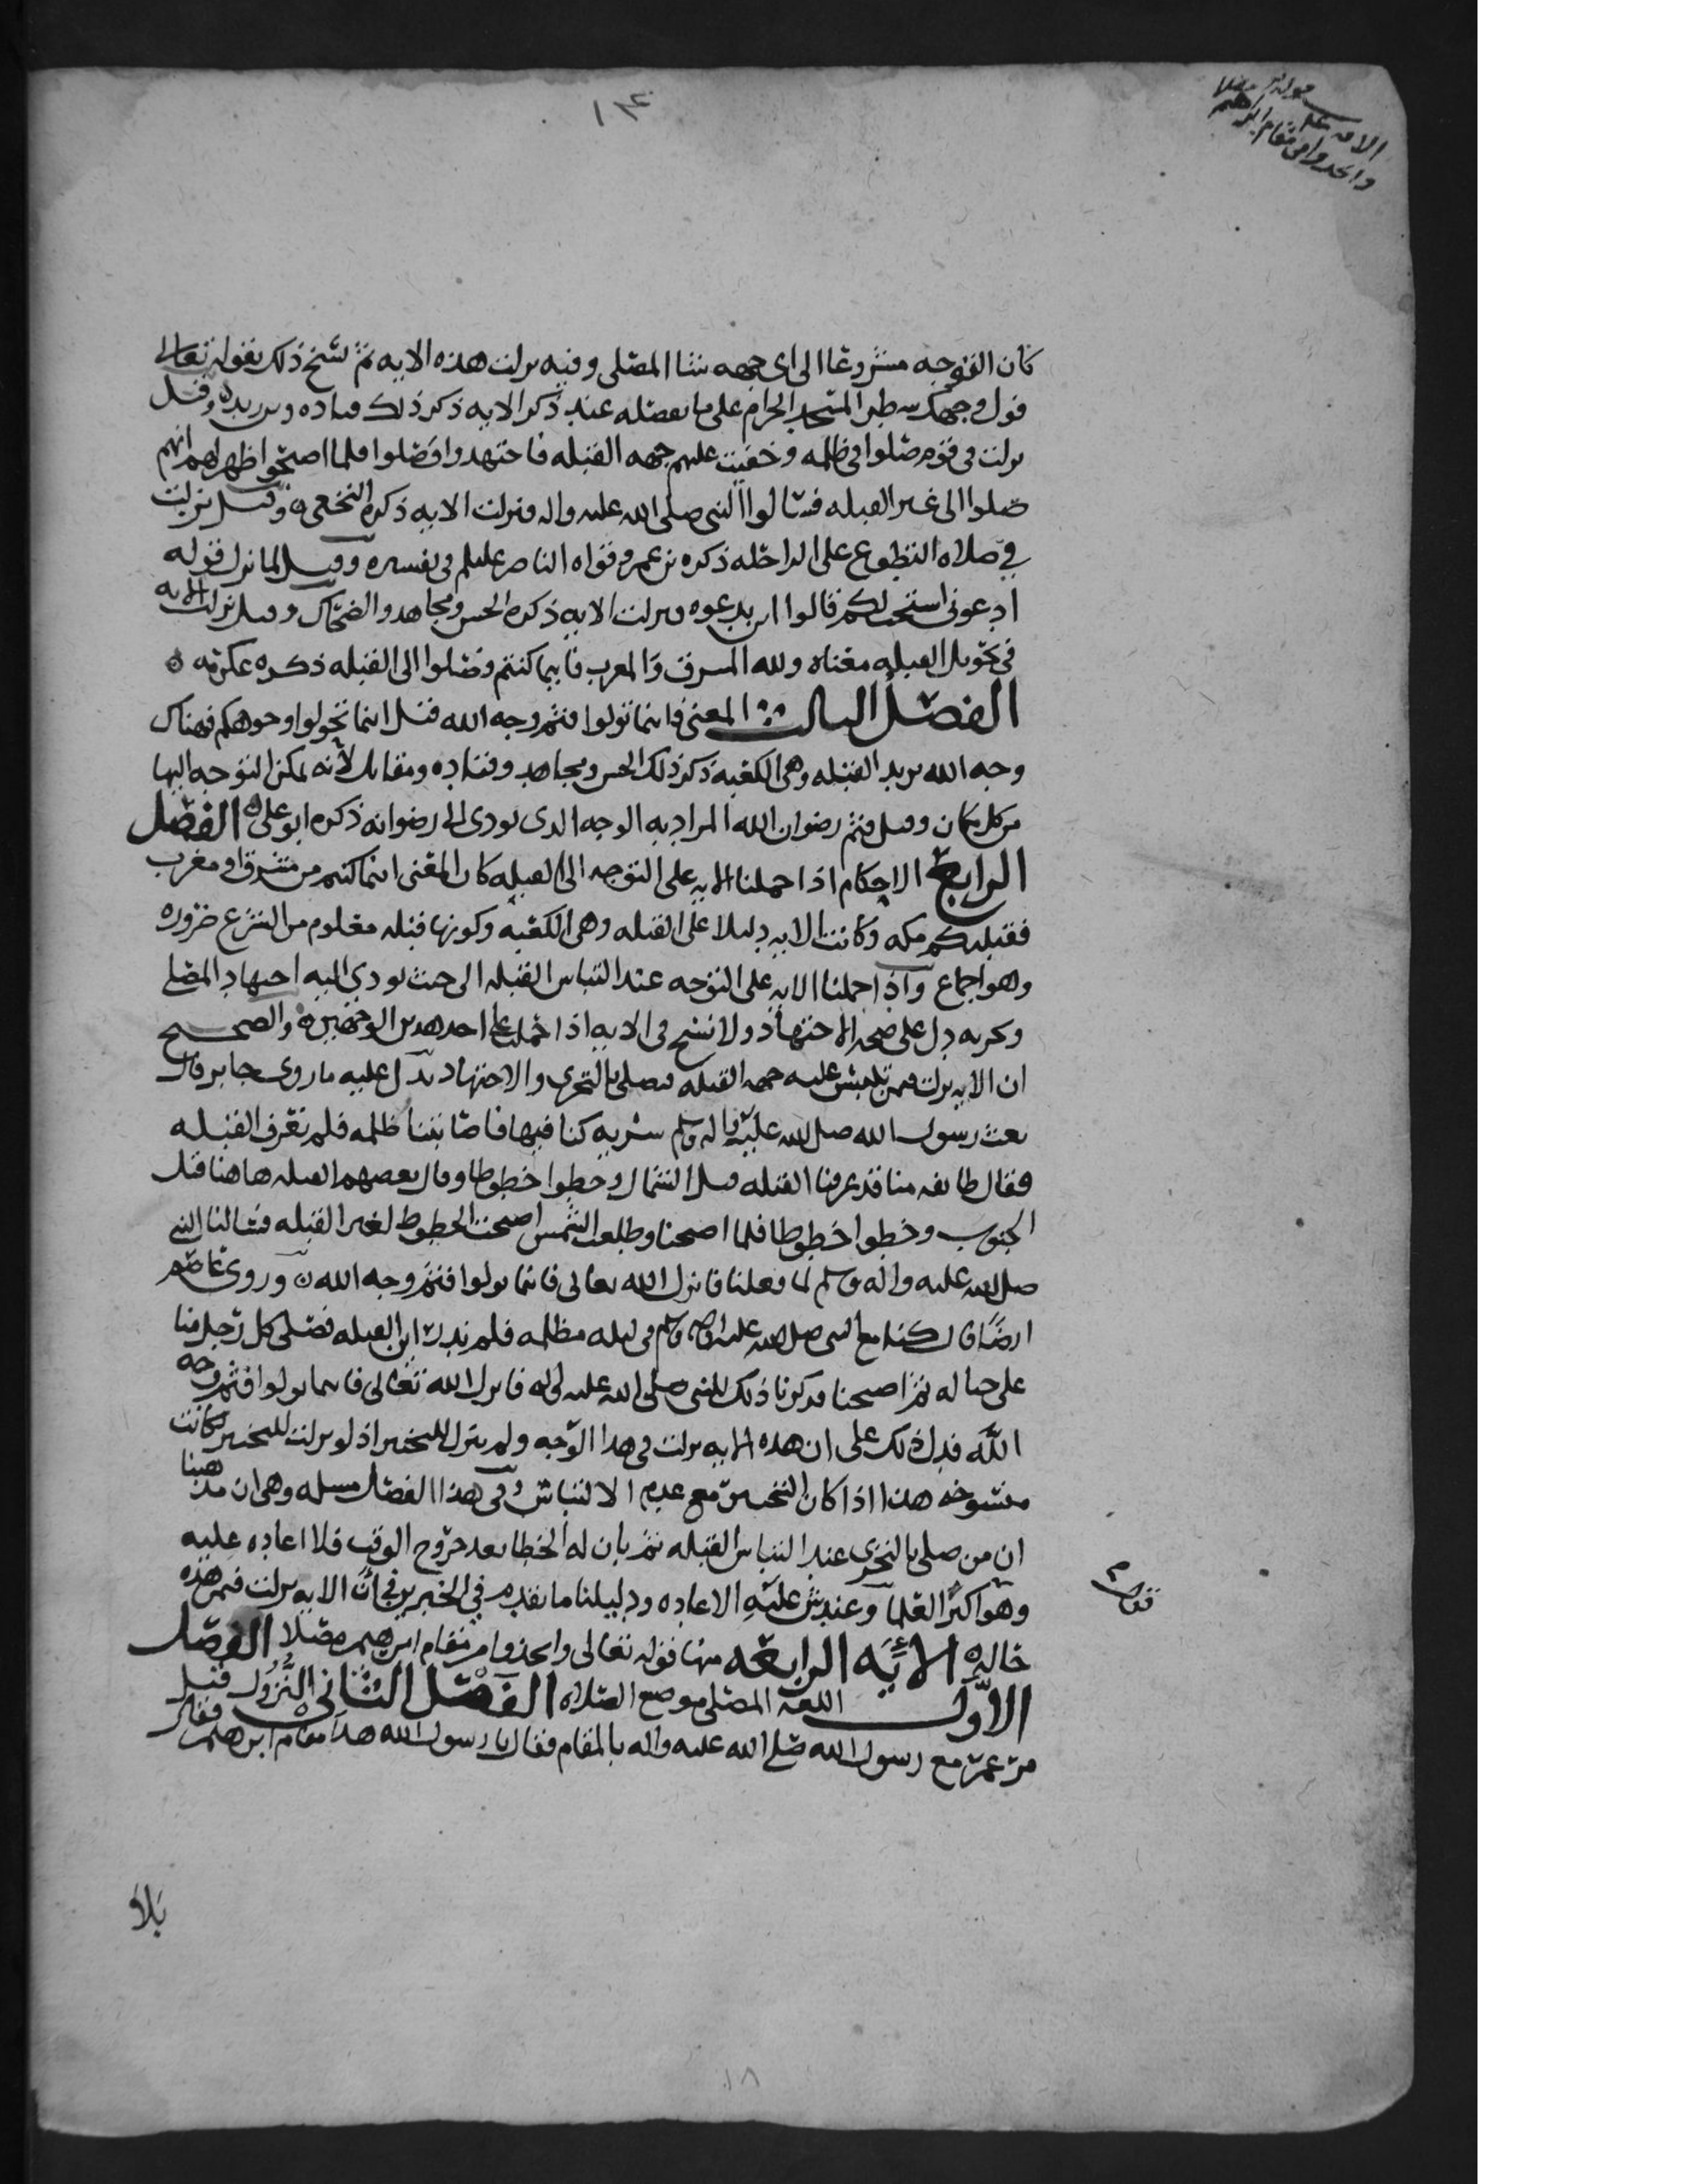 ١٣٤
الايه
واتخذوا من مقام ابرهيم
كان التوجه مشروعا الى اي جهه شا المصلى وفيه نزلت هذه الايه ثم نسخ ذلك بقوله تعالى
فول وجهك شطر المسجد الحرام على ما نفصله عند ذكر الايه ذكر ذلك قتاده وبن زيد ٥ وقيل
نزلت في قوم صلوا في ظلمه وخفيت عليهم جهه القبله فاجتهدوا فصلوا فلما اصبحوا ظهر لهم انهم
صلوا الى غير القبله فسالوا النبي صلى الله عليه واله فنزلت الايه ذكره النخعي ٥ وقيل نزلت
في صلاه التطوع على الراحله ذكره بن عمر وقواه الناصر عليلم في تفسيره وقيل لما نزل قوله
ادعوني استجب لكم قالوا اين ندعوه فنزلت الايه ذكره الحسن ومجاهد والضحاك وقيل نزلت الايه
في تحويل القبله معناه ولله المشرق والمغرب فاينما كنتم فصلوا الى القبله ذكره عكرمه ٥
الفصل الثالث المعنى فاينما تولوا فثم وجه الله قيل اينما تحولوا وجوهكم فهناك
وجه الله يريد القبله وهي الكعبه ذكر ذلك الحسن ومجاهد وقتاده ومقاتل لانه يمكن التوجه اليها
من كل مكان وقيل فثم رضوان الله المراد به الوجه الذي يودي الى رضوانه ذكره ابو علي ٥ الفصل
الرابع الاحكام اذا حملنا الايه على التوجه الى القبله كان المعنى اينما كنتم من مشرق او مغرب
فقبلتكم مكه وكانت الايه دليلا على القبله وهي الكعبه وكونها قبله معلوم من الشرع ضروره
وهو اجماع واذا حملنا الايه على التوجه عند التباس القبله الى حيث يودي اليه اجتهاد المصلي
وتحريه دل على صحه الاجتهاد ولا نسخ في الايه اذا حملت على احد هذين الوجهين ٥ والصحيح
ان الايه نزلت فيمن تلتبس عليه جهه القبله فيصلي بالتحري والاجتهاد يدل عليه ما روى جابر قال
بعث رسول الله صلى الله عليه واله وسلم سريه كنا فيها فاصابتنا ظلمه فلم نعرف القبله
فقال طايفه منا قد عرفنا القبله قبل الشمال وخطوا خطوطا وقال بعضهم القبله هاهنا قبل
الجنوب وخطوا خطوطا فلما اصبحنا وطلعت الشمس اصبحت الخطوط لغير القبله فسالنا النبي
صلى الله عليه واله وسلم لما فعلنا فانزل الله تعالى فاينما تولوا فثم وجه الله ٥ وروى عاصم
ايضا قال كنا مع النبي صلى الله عليه واله وسلم في ليله مظلمه فلم ندر اين القبله فصلى كل رجل منا
على حياله ثم اصبحنا فذكرنا ذلك للنبي صلى الله عليه واله فانزل الله تعالى فاينما تولوا فثم وجه
الله فدل ذلك على ان هذه الايه نزلت في هذا الوجه ولم ينزل للتخيير اذ لو نزلت للتخيير لكانت
منسوخه هذا اذا كان التخيير مع عدم الالتباس وفي هذا الفصل مسله وهي ان مذهبنا
ان من صلى بالتحري عند التباس القبله ثم بان له الخطا بعد خروج الوقت فلا اعاده عليه
وهو اكثر العلما وعند ش عليه الاعاده ودليلنا ما تقدم في الخبرين في ان الايه نزلت فيمن هذه
حاله الايه الرابعه منها قوله تعالى واتخذوا من مقام ابرهيم مصلا الفصل
الاول اللغه المصلى موضع الصلاه الفصل الثاني النزول قيل
مر عمر مع رسول الله صلى الله عليه واله بالمقام فقال يا رسول الله هذا مقام ابرهيم فقال
بلا
١٨